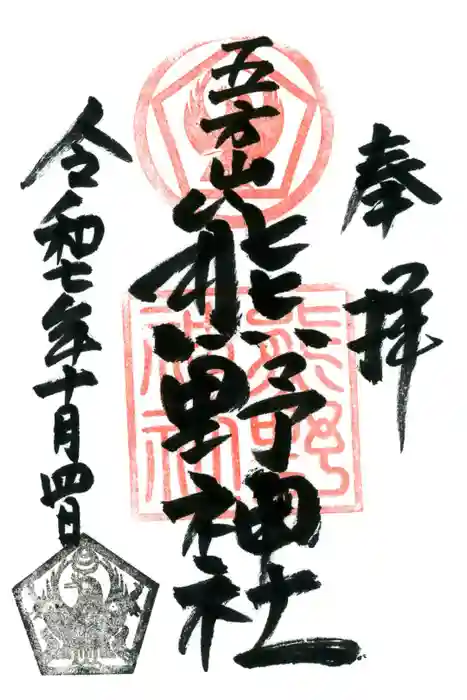 奉拝
五方山熊野神社
令和七年十月四日
熊野神社